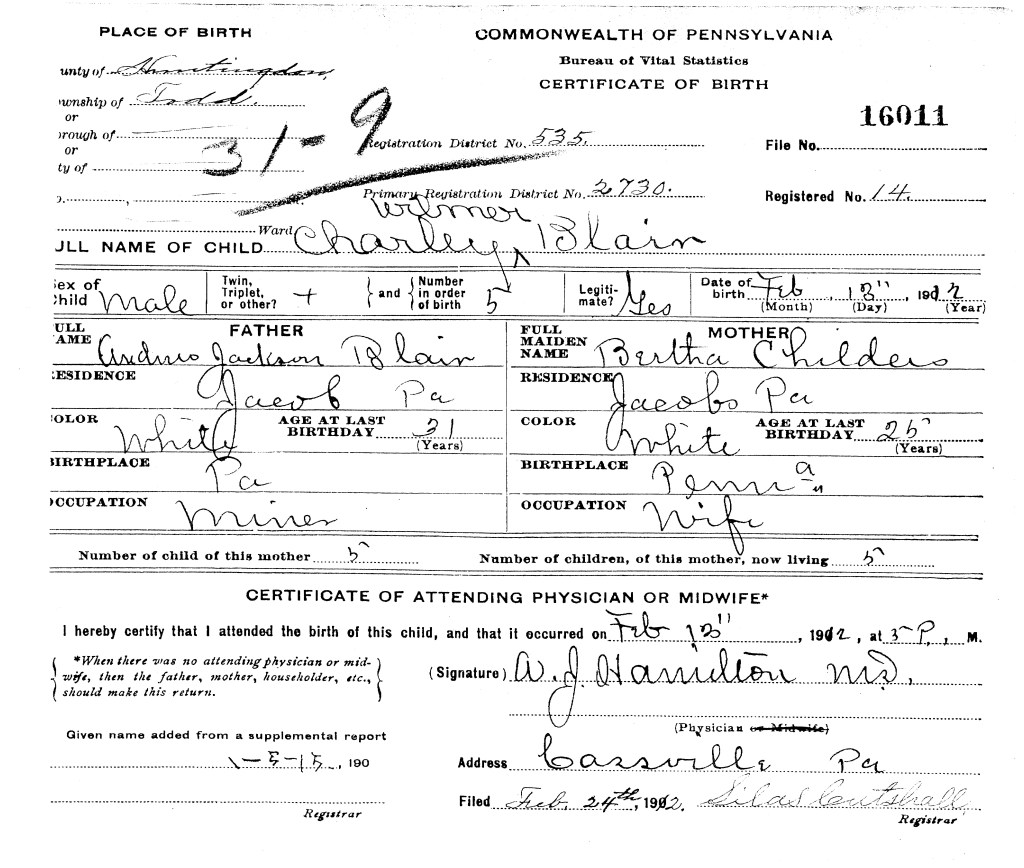 PLACE OF BIRTH
COMMONWEALTH OF PENNSYLVANIA
Bureau of Vital Statistics
CERTIFICATE OF BIRTH
unty of Huntingdon
ownship of Todd.
or
orough of
or
ty of
31-9
Registration District No. 535.
Primary Registration District No. 2730.
16011
File No.
Registered No. 14.
Ward
Wilmer
ULL NAME OF CHILD Charley ^ Blair
Sex of Child Male
Twin, Triplet, or other? +
and
Number in order of birth 5
Legiti-mate? Yes
Date of birth Feb , 13" , 1912
(Month) (Day) (Year)
FATHER
ULL NAME Andrew Jackson Blair
RESIDENCE Jacob Pa
COLOR White
AGE AT LAST BIRTHDAY 31 (Years)
BIRTHPLACE Pa
OCCUPATION Miner
MOTHER
FULL MAIDEN NAME Bertha Childers
RESIDENCE Jacobs Pa
COLOR White
AGE AT LAST BIRTHDAY 25 (Years)
BIRTHPLACE Penn a
OCCUPATION Wife
Number of child of this mother 5
Number of children, of this mother, now living 5
CERTIFICATE OF ATTENDING PHYSICIAN OR MIDWIFE*
I hereby certify that I attended the birth of this child, and that it occurred on Feb 13" , 1912, at 3 P, M.
*When there was no attending physician or mid-
wife, then the father, mother, householder, etc.,
should make this return.
(Signature) A. J. Hamilton MD.
(Physician or Midwife)
Given name added from a supplemental report
1-5-15, 190
Registrar
Address Cassville Pa
Filed Feb. 24th, 1912. Silas Cutshall
Registrar